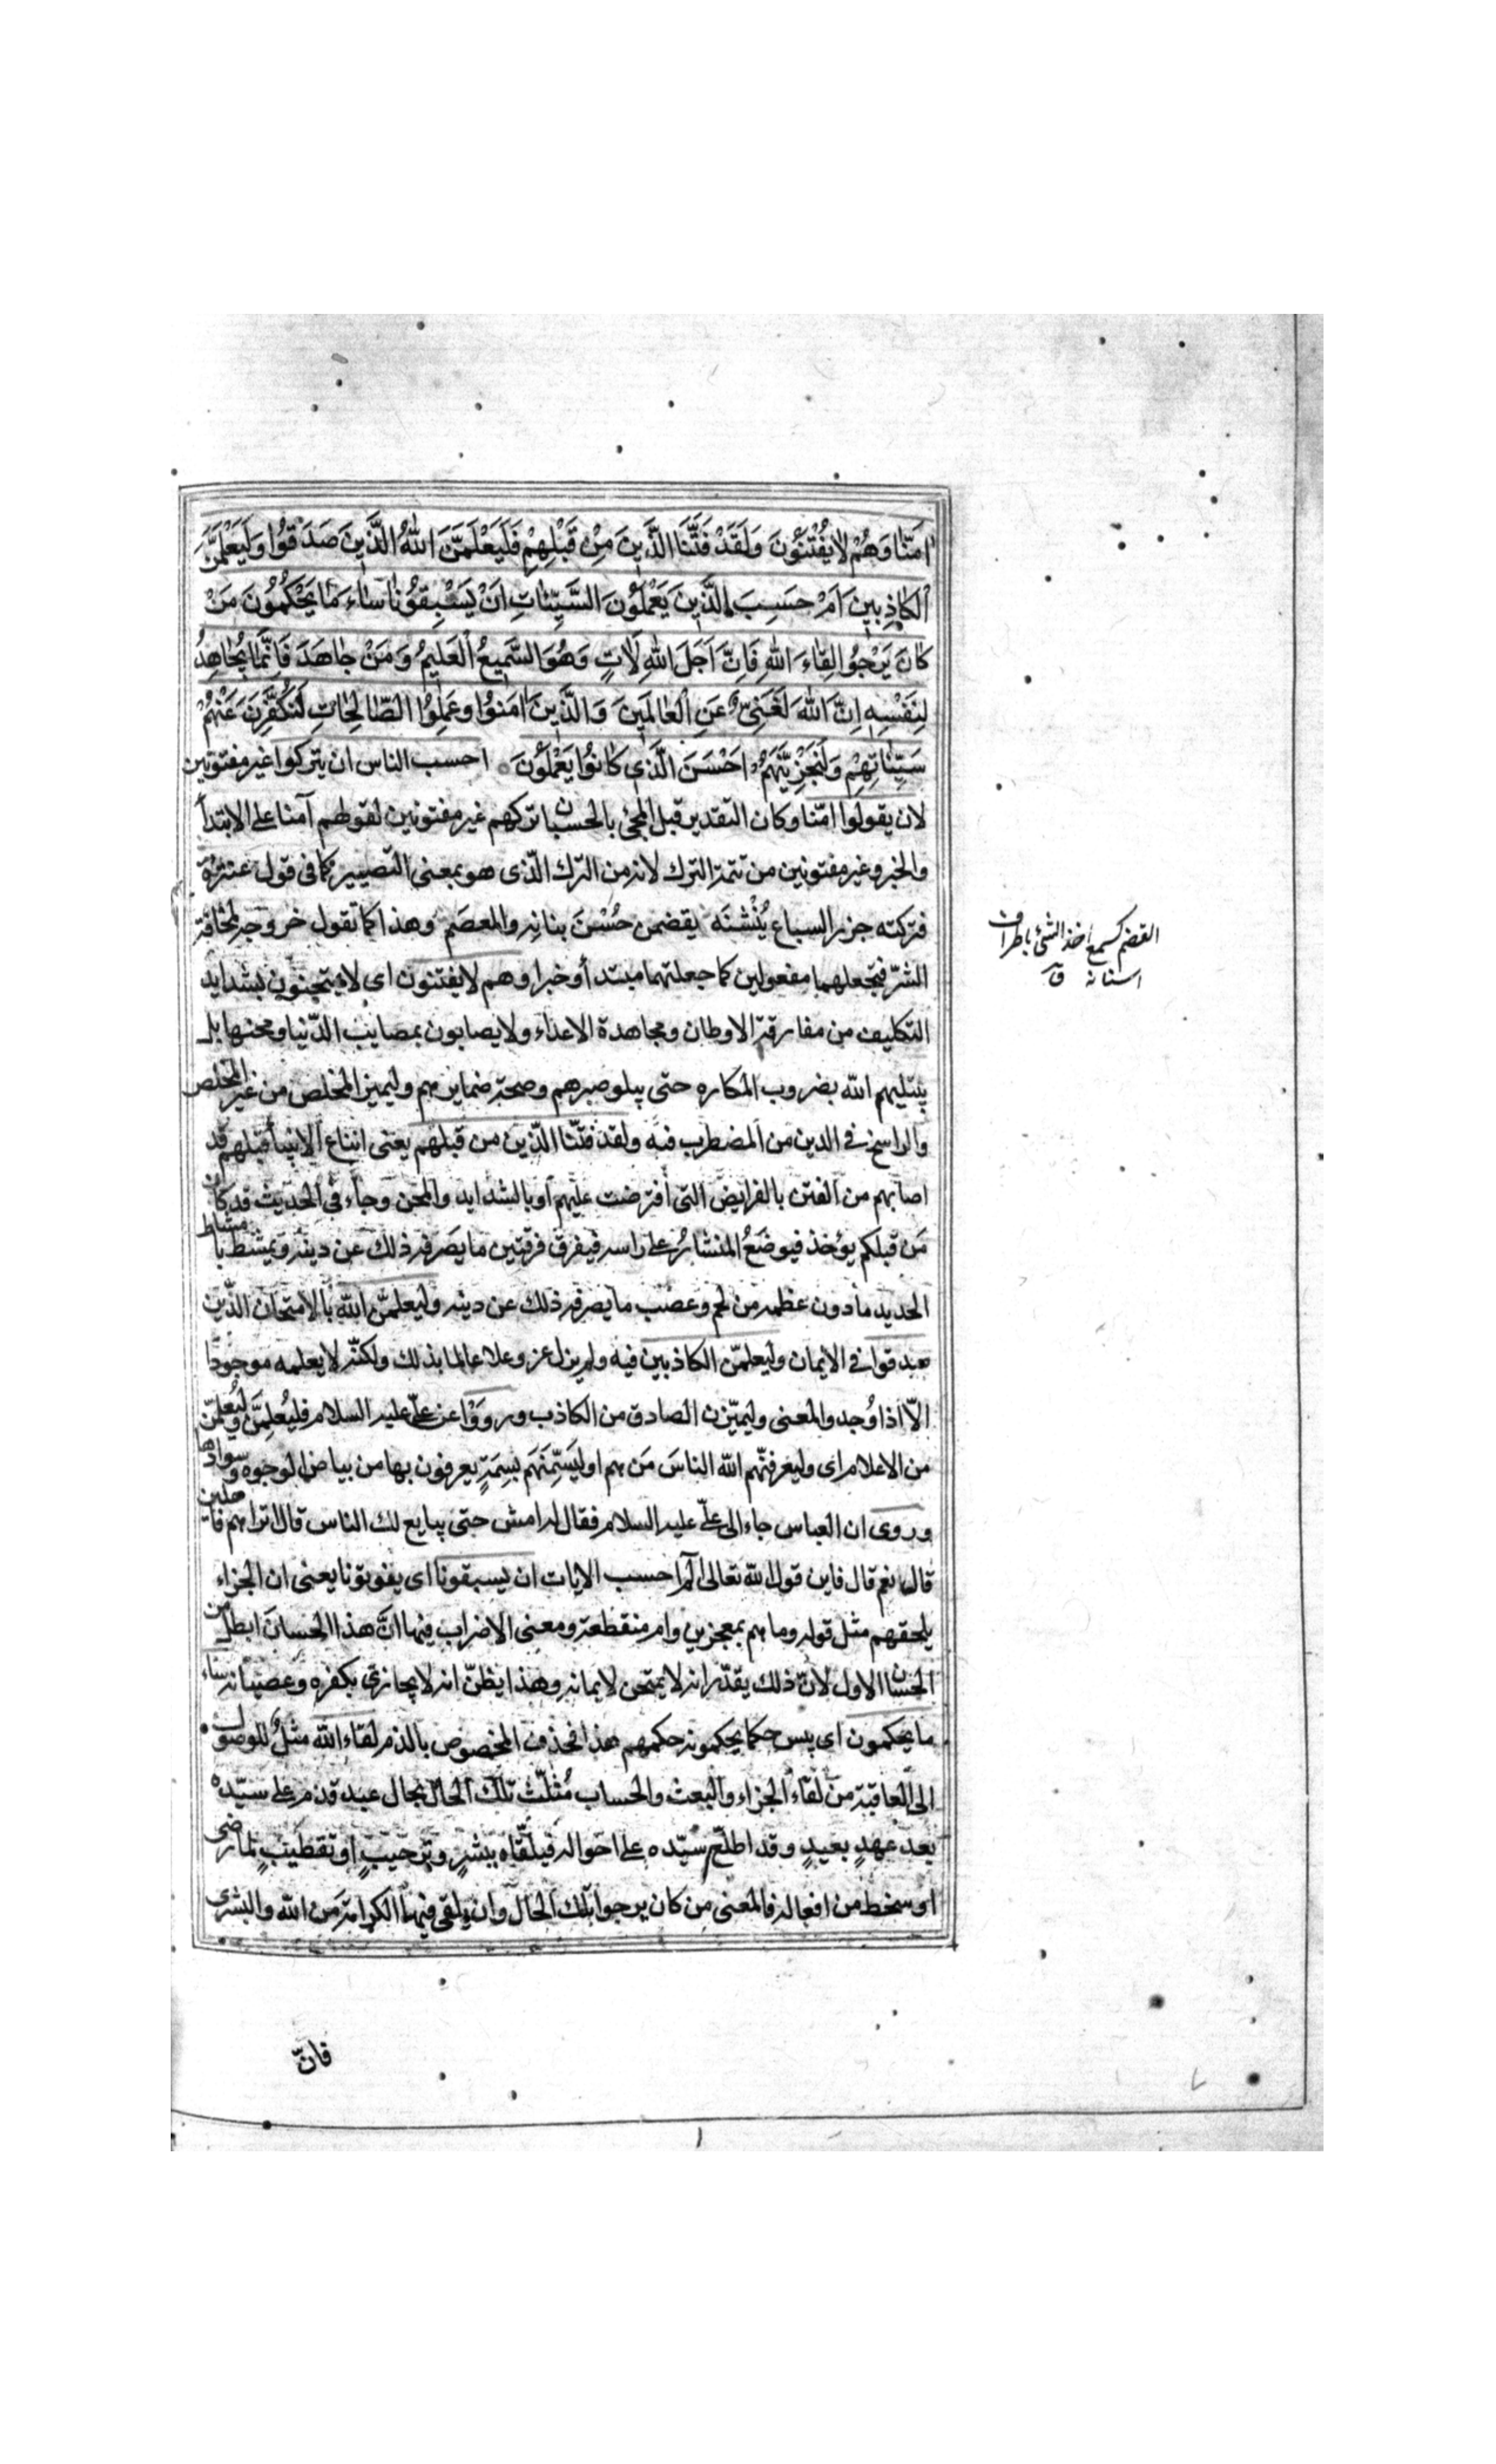 اٰمَنّا وَهُمْ لا يُفْتَنُونَ وَلَقَدْ فَتَنَّا الَّذَينَ مِنْ قَبْلِهِمْ فَلَيَعْلَمَنَّ اللّٰهُ الَّذَينَ صَدَقُوا وَلَيَعْلَمَنَّ
الْكاذِبينَ اَمْ حَسِبَ الَّذَينَ يَعْمَلُونَ السَّيِّئاتِ اَنْ يَسْبِقُونا ساءَ مَا يَحْكُمُونَ مَنْ
كانَ يَرْجُوا لِقاءَ اللّٰهِ فَاِنَّ اَجَلَ اللّٰهِ لَاٰتٍ وَهُوَ السَّميعُ الْعَليمُ وَ مَنْ جاهَدَ فَاِنَّما يُجاهِدُ
لِنَفْسِهِ اِنَّ اللّٰهَ لَغَنِىٌّ عَنِ الْعالَمينَ وَ الَّذينَ اٰمَنوُا وعَمِلوُا الصّالِحاتِ لَنُكَفِّرَنَّ عَنْهُمْ
سَيِّئاتِهِمْ وَلَنَجْزِيَنَّهُمْ اَحْسَنَ الَّذى كانوُا يَعْمَلُونَ احسب الناس ان يتركوا غير مفتونين
لان يقولوا امنّا وكان التقدير قبل المجئ بالحسبان تركهم غير مفتونين لقولهم آمنا على الابتدأ
والخبر وغير مفتونين من تتمة الترك لانه من الترك الّذى هو بمعنى التصيير كما فى قول عنترة
فتركته جزر السباع يَنُشْنَه يقضمن حُسْنَ بنانه والمعصَم وهذا كما تقول خروجه لمخافة
الشرّ فتجعلهما مفعولين كما جعلتهما مبتدأ وخبرا وهم لا يفتنون اى لا يمتحنون بشدايد
التكليف من مفارقة الاوطان ومجاهدة الاعداء ولا يصابون بمصايب الدّنيا ومحنها بل
يبتليهم الله بضروب المكاره حتى يبلو صبرهم وصحة ضمايرهم وليميز المخلص من غير المخلص
والراسخ فى الدين من المضطرب فيه ولقد فتنّا الّذين من قبلهم يعنى اتباع الانبيأ قبلهم قد
اصابهم من الفتن بالفرايض التى افترضت عليهم او بالشدايد والمحن وجاء فى الحديث قد كان
مَن قبلكم يؤخذ فيوضَعُ المنشارُ على راسه فيفرق فرقتين ما يصَرفه ذلك عن دينه ويمشط بامشاط
الحديد مادون عظمه من لحم وعصب ما يصرفه ذلك عن دينه وليعلمنّ الله بالامتحان الّذين
صدقوا فى الايمان وليعلمنّ الكاذبين فيه ولم يزل عز وعلا عالما بذلك ولكنّه لا يعلمه موجودا
الّا اذا وُجد والمعنى وليميّزن الصادق من الكاذب ورووْا عن علىّ عليه السلام فليُعلِمَنّ وليُعلمنّ
من الاعلام اى وليعرفنّهم الله الناسَ مَن هم او ليَسِّمَنَهم بسِمَةٍ يعرفون بها من بياض الوجوه وسوادها
وروى ان العباس جاء الى علىّ عليه السلام فقال له امش حتى يبايع لك الناس قال اتراهم فاعلين
قال نعم قال فاين قول الله تعالى الم احسب الايات ان يسبقونا اى يفوتونا يعنى ان الجزاء
يلحقهم مثل قوله وما هم بمعجزين وام منقطعة ومعنى الاضراب فيها انّ هذا الحسبان ابطل من
الحسبان الاول لانّ ذلك يقدّر انه لا يمتحن لايمانه وهذا يظنّ انه لا يجازى بكفره وعصيانه ساء
ما يحكمون اى بيس حكما يحكمونه حكمهم هذا فحذف المخصوص بالذم لقاء الله مثلٌ للوصول
الى العاقبة من لقاء الجزاء والبعث والحساب مُثلّث تلك الحال بحال عبد قدم على سيّده
بعد عهدٍ بعيدٍ وقد اطلع سيّده على احواله فيلقّاه ببشرٍ وترحيبٍ او تقطيبٍ لما رضى
او سخط من افعاله فالمعنى من كان يرجوا تلك الحال وان يلقى فيها الكرامة من الله والبشرى
القضم كسمع اخذ الشئ باطراف
اسنانه ق
فانّ